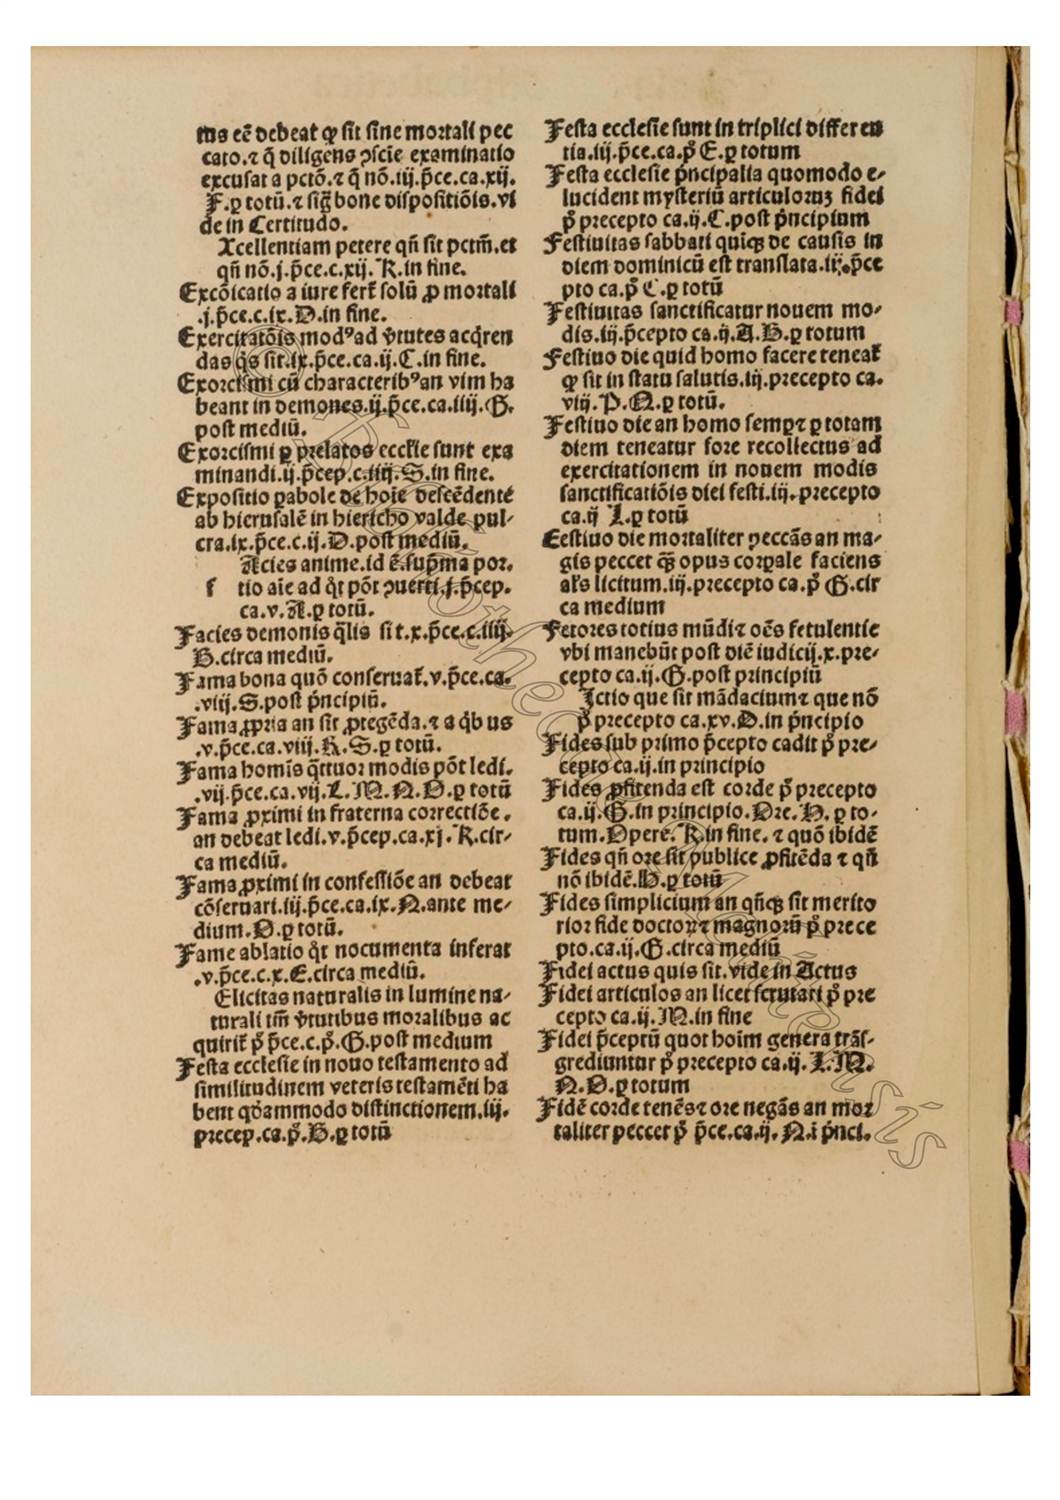 tus eē debeat ꝙ sit sine mortali pec
cato.⁊ q̄ diligens ꝯscie examinatio
excusat a pctō.⁊ q̄ nō.iij.p̄ce.ca.xij.
F.ꝑ totū.⁊ sig̅ bone dispositiōis.vi
de in Certitudo.
Xcellentiam petere qn̄ sit pctm̄.et
qn̄ nō.j.p̄ce.c.xij.K.in fine.
Excōicatio a iure fert̄ solū ꝓ mortali
.j.p̄ce.c.ix.D.in fine.
Exercitatōis modꝰ ad v̄tutes acq̄ren
das q̄s sit.ix.p̄ce.ca.ij.C.in fine.
Exorcismi cū characteribꝰ an vim ha
beant in demones.ij.p̄ce.ca.iiij.G.
post mediū.
Exorcismi ꝑ prelatos eccl̄ie sunt exa
minandi.ij.p̄cep.c.iiij.S.in fine.
Expositio ꝑabole de hoīe descēdente
ab hierusalē in hiericho valde pul-
cra.ix.p̄ce.c.ij.D.post mediū.
Acies anime.id ē.sup̄ma por.
f tio aīe ad q̄t pōt ꝯuerti.j.p̄cep.
ca.v.A.ꝑ totū.
Facies demonis q̄lis sit.x.p̄ce.c.iiij.
B.circa mediū.
Fama bona quō conseruat̄.v.p̄ce.ca.
.viij.S.post p̄ncipiū.
Fama ꝓpria an sit ꝓtegēda.⁊ a qb us
.v.p̄ce.ca.viij.R.S.ꝑ totū.
Fama homīs q̄ttuor modis pōt ledi.
.vij.p̄ce.ca.vij.L.M.N.O.ꝑ totū
Fama ꝓximi in fraterna correctiōe.
an debeat ledi.v.p̄cep.ca.xj.K.cir-
ca mediū.
Fama ꝓximi in confessiōe an debeat
cōseruari.iij.p̄ce.ca.ix.N.ante me-
dium.O.ꝑ totū.
Fame ablatio q̄t nocumenta inferat
.v.p̄ce.c.x.E.circa mediū.
Elicitas naturalis in lumine na-
turali tm̄ v̄tutibus moralibus ac
quirit̄ pͦ p̄ce.c.pͦ.G.post medium
Festa ecclesie in nouo testamento ad
similitudinem veteris testamēti ha
bent qdāmmodo distinctionem.iij.
precep.ca.pͦ.B.ꝑ totū
Festa ecclesie sunt in triplici differen
tia.iij.p̄ce.ca.pͦ E.ꝑ totum
Festa ecclesie p̄ncipalia quomodo e-
lucident mysteriū articuloruꝫ fidei
pͦ precepto ca.ij.C.post p̄ncipium
Festiuitas sabbati quīqꝫ de causis in
diem dominicū est translata.iij.p̄ce
pto ca.pͦ C.ꝑ totū
Festiuitas sanctificatur nouem mo-
dis.iij.p̄cepto ca.ij.A.B.ꝑ totum
Festiuo die quid homo facere teneat̄
ꝙ sit in statu salutis.iij.precepto ca.
viij.P.Q.ꝑ totū.
Festiuo die an homo semꝑ ⁊ ꝑ totam
diem teneatur fore recollectus ad
exercitationem in nouem modis
sanctificatiōis diei festi.iij.precepto
ca.ij I.ꝑ totū
Eestiuo die mortaliter peccās an ma-
gis peccet qꝫ opus corꝑale faciens
al̄s licitum.iij.precepto ca.pͦ G.cir
ca medium
Fetores totius mūdi ⁊ oēs fetulentie
vbi manebūt post diē iudicij.x.pre-
cepto ca.ij.G.post principiū
Ictio que sit mādacium ⁊ que nō
pͦ precepto ca.xv.O.in p̄ncipio
Fides sub primo p̄cepto cadit pͦ pre-
cepto ca.ij.in principio
Fides ꝓfitenda est corde pͦ precepto
ca.ij.G.in principio.Ore.H.ꝑ to-
tum.Opere.K.in fine.⁊ quō ibidē
Fides qn̄ ore sit publice ꝓfitēda ⁊ qn̄
nō ibidē.H.ꝑ totū
Fides simplicium an qn̄qꝫ sit merito
rior fide doctoꝝ ⁊ magnorū pͦ prece
pto.ca.ij.G.circa mediū
Fidei actus quis sit.vide in Actus
Fidei articulos an licet scrutari pͦ pre
cepto ca.ij.M.in fine
Fidei p̄ceptū quot hoīm genera trās-
grediuntur pͦ precepto ca.ij.L.M.
N.O.ꝑ totum
Fidē corde tenēs ⁊ ore negās an mor
taliter peccet pͦ p̄ce.ca.ij.N.i p̄nci.